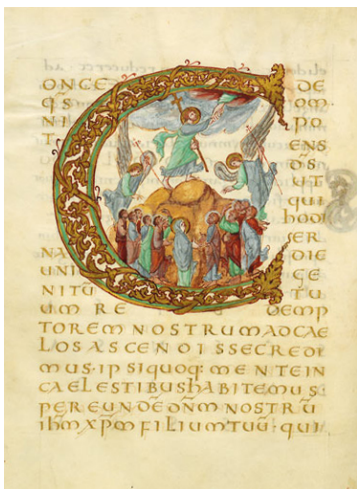 CONCE DE
q̄s OM
NI PO
T ENS
D̄S
UT
qui
hodi
ER
NA DIE
UNI GE
NITŪ TU
UM RE DEMP
TOREM NOSTRUM AD CAE
LOS ASCENDISSE CREDI
MUS · IPSI QUOQ: MENTE IN
CAELESTIBUS HABITEMUS
PER EUNDĒ D̄N̄M NOSTRŪ
IH̄M XP̄M FILIUM TUŪ: QUI